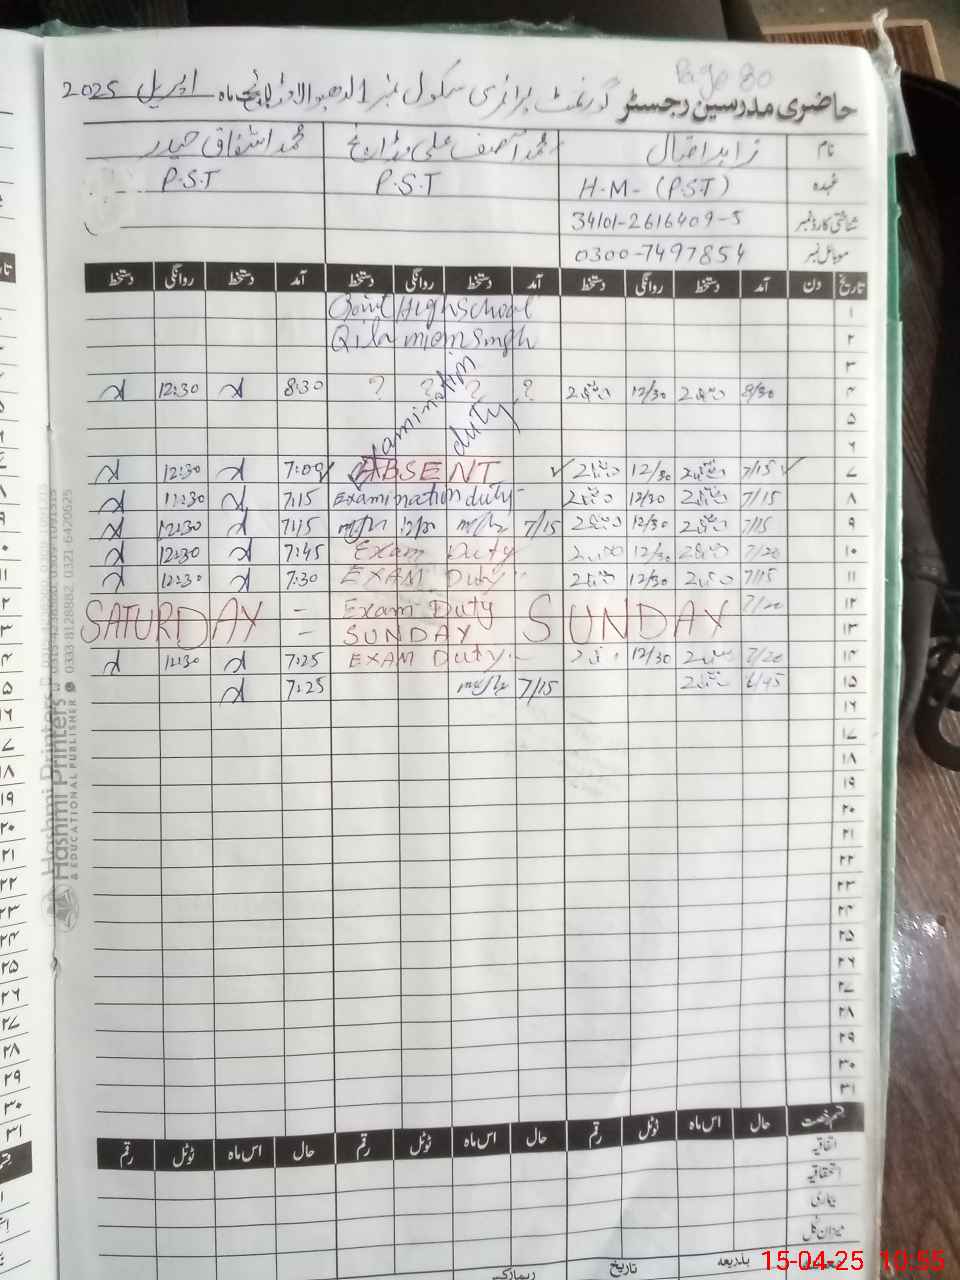 Page 80
حاضری مدرسین رجسٹر گورنمنٹ پرائمری سکول نمبر 1 لدھیوالا وڑائچ ماہ اپریل 2025
نام زاہد اقبال محمد آصف علی وڑائچ محمد اشفاق حیدر
عہدہ H.M- (P.S.T) P.S.T P.S.T
شناختی کارڈ نمبر 34101-2616409-5
موبائل نمبر 0300-7497854
تاریخ دن آمد دستخط روانگی دستخط آمد دستخط روانگی دستخط آمد دستخط روانگی دستخط
۱ Govt High School
۲ Qila mian Singh
۳
۴ 8/30 12/30 ? ? ? ? 8:30 12:30
Examination duty
۵
۶
۷ 7/15 12/30 ABSENT 7:09 12:30
۸ 7/15 12/30 Examination duty 7:15 11:30
۹ 7/15 12/30 7/15 12/30 7:15 12:30
۱۰ 7/20 12/30 Exam Duty 7:45 12:30
۱۱ 7/15 12/30 EXAM Duty 7:30 12:30
۱۲ 7/20 Exam Duty –
۱۳ SUNDAY SUNDAY – SATURDAY
۱۴ 7/20 12/30 EXAM Duty 7:25 12:30
۱۵ 6/45 7/15 7:25
۱۶
۱۷
۱۸
۱۹
۲۰
۲۱
۲۲
۲۳
۲۴
۲۵
۲۶
۲۷
۲۸
۲۹
۳۰
۳۱
قسم رخصت حال اس ماہ ٹوٹل رقم حال اس ماہ ٹوٹل رقم حال اس ماہ ٹوٹل رقم
اتفاقیہ
استحقاقیہ
بیماری
میزان کل
بذریعہ تاریخ ریمارکس
Hashmi Printers
& EDUCATIONAL PUBLISHER
0333-8128882, 0321-6420625
15-04-25 10:55